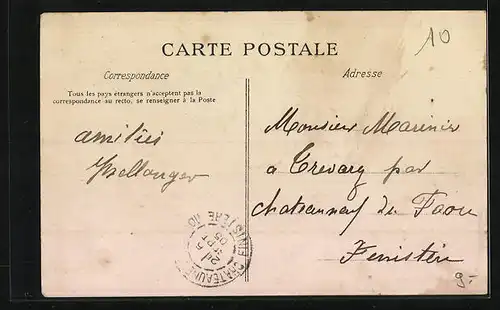 10
CARTE POSTALE
Correspondance
Adresse
Tous les pays étrangers n'acceptent pas la
correspondance au recto, se renseigner à la Poste
amitiés
YBellanger
Monsieur Marinier
a Trevarez par
Chateauneuf du Faou
Finistère
FINISTERE
SEPT
05